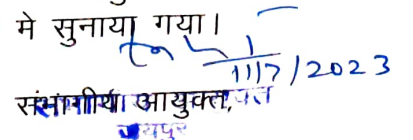 मे सुनाया गया।
11/7/2023
संभागीय आयुक्त,
जयपुर